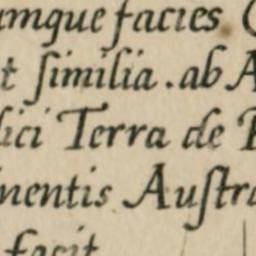 umque facies
t ſimilia . ab A
lici Terra de
nentis Auſtra
facit